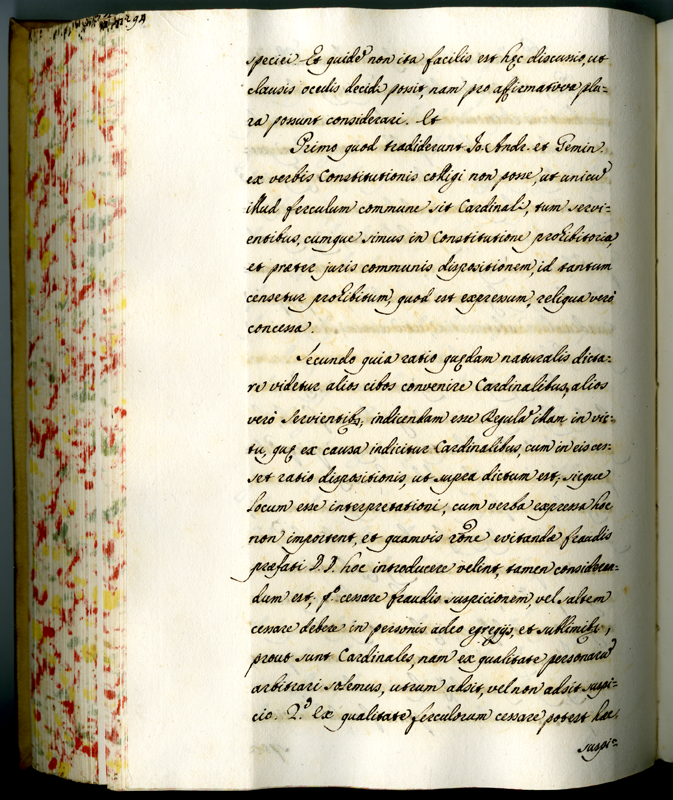 294
speciei. Et quidē non ita facilis est hęc discussio, ut
clausis oculis decidi possit, nam pro affirmativa plu-
ra possunt considerari. Et
Primo quod tradiderunt Jo: Andr. et Gemin.
ex verbis Constitutionis colligi non posse, ut unicū
illud ferculum commune sit Cardinali, tum servi-
entibus, cumque simus in Constitutione prohibitoria,
et præter juris communis dispositionem, id tantum
censetur prohibitum, quod est expressum, reliqua verò
concessa.
Secundo quia ratio quędam naturalis dicta-
re videtur alios cibos convenire Cardinalibus, alios
verò servientibȝ, indicendam esse Regulā illam in vic-
tu, quę ex causa indicitur Cardinalibus, cum in eis ces-
set ratio dispositionis, ut supra dictum est; sicque
locum esse interpretationi, cum verba expressa hoc
non important, et quamvis rōne evitandæ fraudis
præfati D.D. hoc introducere velint, tamen consideran-
dum est, p.º cessare fraudis suspicionem, vel saltem
cessare debere in personis adeo egregijs, et sublimibȝ,
prout sunt Cardinales, nam ex qualitate personarū
arbitrari solemus, utrum adsit, vel non adsit suspi-
cio. 2.º Ex qualitate ferculorum cessare potest hæc
suspi-